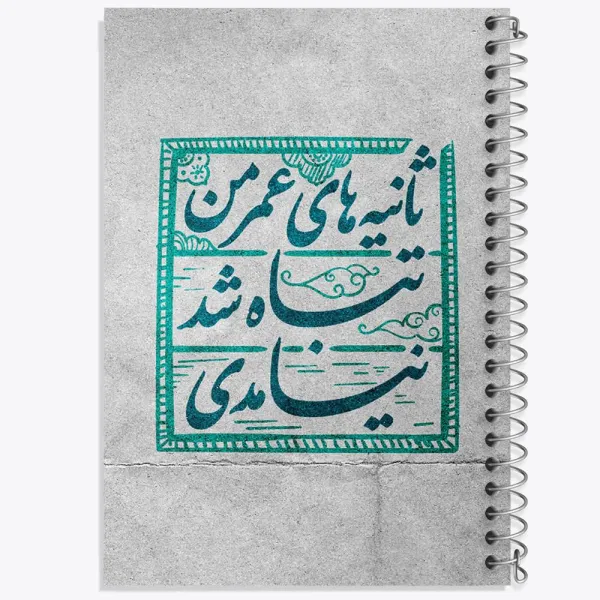 ثانیه های عمر من
تباه شد
نیامدی